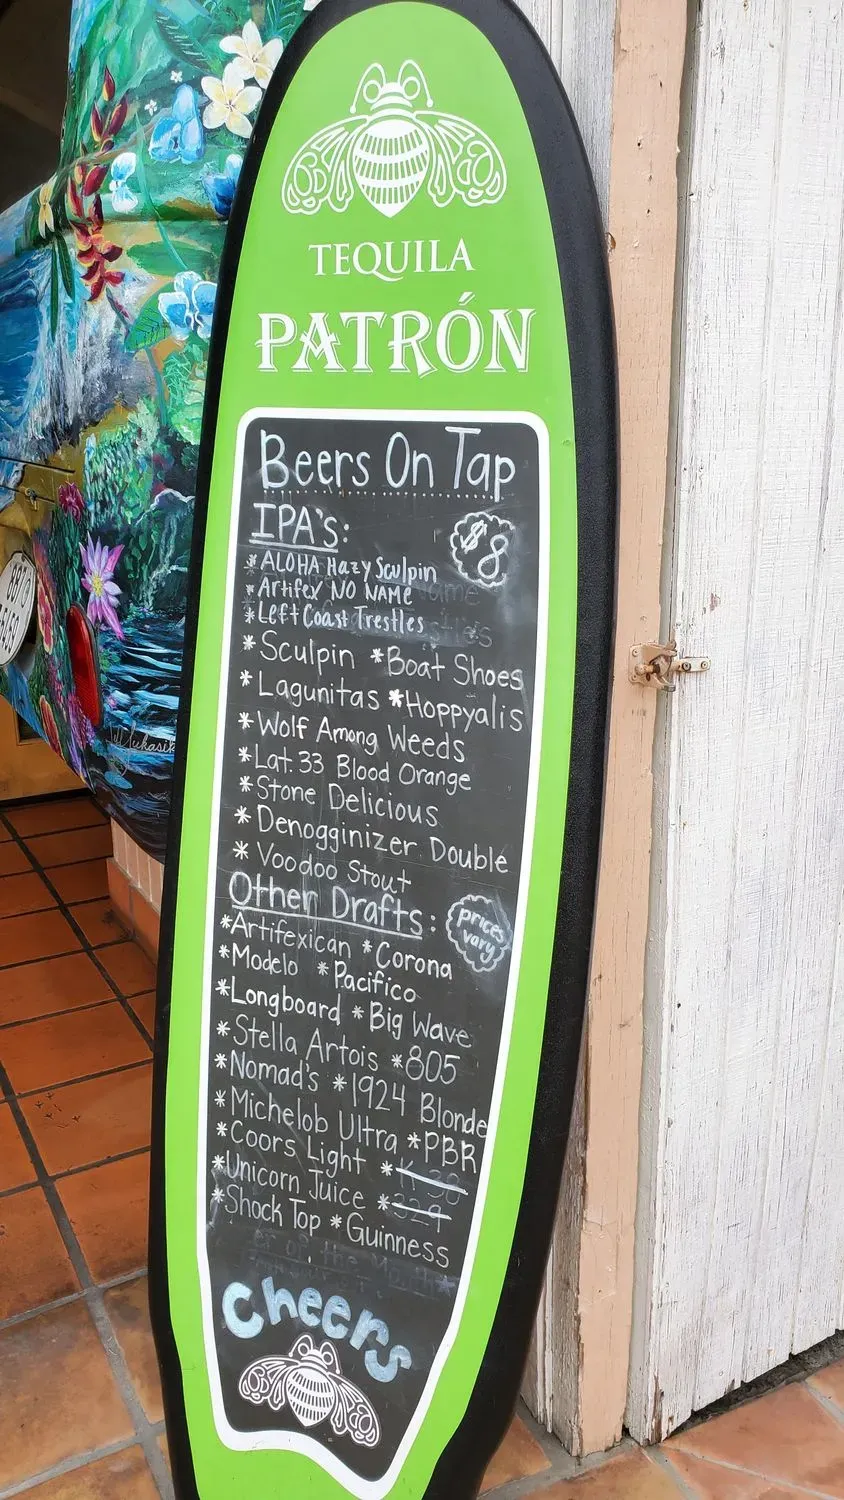 TEQUILA
PATRÓN
Beers On Tap
IPA's:
$8
*ALOHA Hazy Sculpin
*Artifex NO NAME
*Left Coast Trestles
*Sculpin *Boat Shoes
*Lagunitas *Hoppyalis
*Wolf Among Weeds
*Lat. 33 Blood Orange
*Stone Delicious
*Denogginizer Double
*Voodoo Stout
Other Drafts:
prices
vary
*Artifexican *Corona
*Modelo *Pacifico
*Longboard *Big Wave
*Stella Artois *805
*Nomad's *1924 Blonde
*Michelob Ultra *PBR
*Coors Light *K-38
*Unicorn Juice *329
*Shock Top *Guinness
Cheers